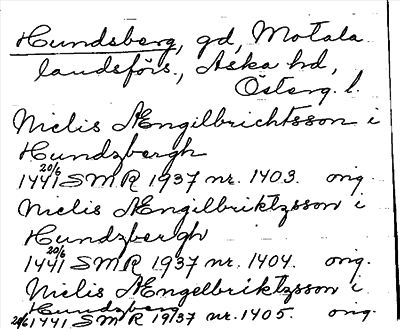 Hundsberg, gd, Motala
landsförs., Aska hd,
Österg. l.
Nielis Ængilbrichtsson i
Hundzbergh
20/6 1441 SMR 1937 nr. 1403. orig.
Nielis Ængilbriktzsson i
Hundzbergh
20/6 1441 SMR 1937 nr. 1404. orig.
Nielis Ængelbriktzsson i
Hundzberg
20/6 1441 SMR 1937 nr. 1405. orig.